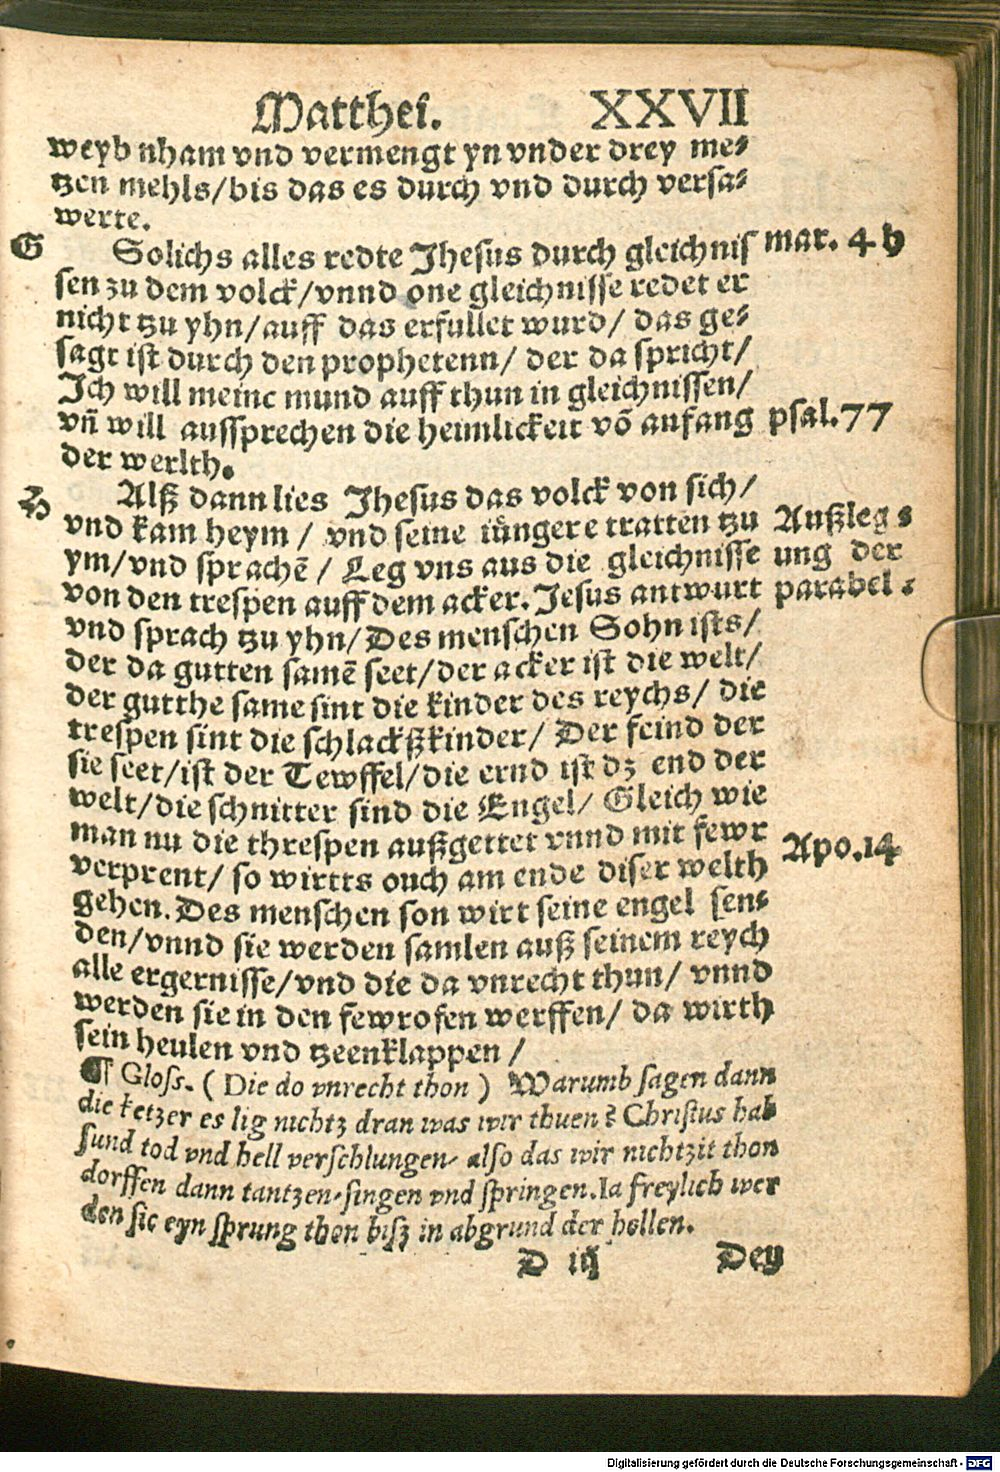 Matthei. XXVII
weyb nham vnd vermengt yn vnder drey me-
tzen mehls/bis das es durch vnd durch versa-
werte.
G Solichs alles redte Jhesus durch gleichnis mar. 4 b
sen zu dem volck/vnnd one gleichnisse redet er
nicht tzu yhn/auff das erfullet wurd/ das ge-
sagt ist durch den prophetenn/ der da spricht/
Ich will meine mund auff thun in gleichnissen/
vn̄ will aussprechen die heimlickeit vō anfang psal.77
der werlth.
H Alß dann lies Jhesus das volck von sich/
vnd kam heym / vnd seine iůngere tratten tzu Außleg-
ym/vnd sprachē / Leg vns aus die gleichnisse ung der
von den trespen auff dem acker. Jesus antwurt parabel.
vnd sprach tzu yhn/Des menschen Sohn ists/
der da gutten samē seet/der acker ist die welt/
der gutthe same sint die kinder des reychs/ die
trespen sint die schlackßkinder/ Der feind der
sie seet/ist der Tewffel/die ernd ist dz end der
welt/die schnitter sind die Engel/ Gleich wie
man nu die threspen außgettet vnnd mit fewr
verprent/ so wirtts ouch am ende diser welth Apo.14
gehen. Des menschen son wirt seine engel sen-
den/vnnd sie werden samlen auß seinem reych
alle ergernisse/vnd die da vnrecht thun/ vnnd
werden sie in den fewrofen werffen/ da wirth
sein heulen vnd tzeenklappen /
¶ Gloss. ( Die do vnrecht thon ) Warumb sagen dann
die ketzer es lig nichtz dran was wir thuen? Christus hab
sund tod vnd hell verschlungen, also das wir nichtzit thon
dorffen dann tantzen, singen vnd springen. Ia freylich wer
den sie eyn sprung thon bisz in abgrund der hellen.
D iij Dey
Digitalisierung gefördert durch die Deutsche Forschungsgemeinschaft - DFG